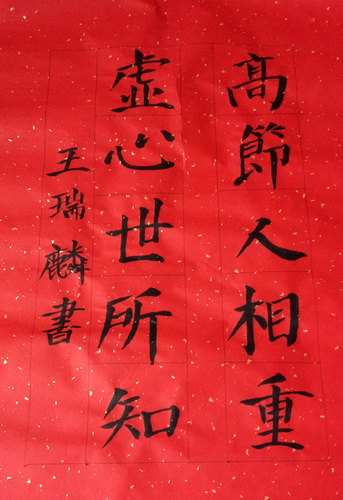 髙節人相重
虚心世所知
王瑞麟書